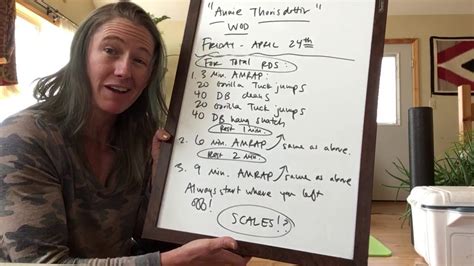 "Annie Thorisdottir"
WOD
FRIDAY - APRIL 24th
FOR TOTAL RDS:
1. 3 min. AMRAP:
20 Gorilla Tuck jumps
40 DB cleans
20 Gorilla Tuck jumps
40 DB hang snatch
Rest 1 min.
2. 6 min. AMRAP same as above.
Rest 2 min.
3. 9 min. AMRAP same as above
Always start where you left
off!
SCALES!?